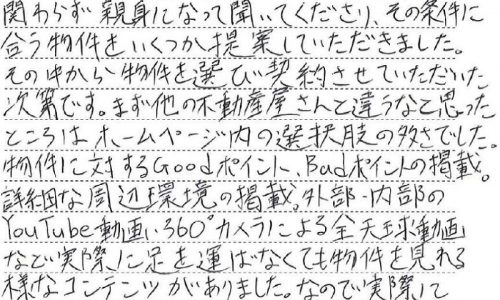 関わらず親身になって聞いてくださり、その条件に
合う物件をいくつか提案していただきました。
その中から物件を選び契約させていただいた
次第です。まず他の不動産屋さんと違うなと思った
ところはホームページ内の選択肢の多さでした。
物件に対するGoodポイント、Badポイントの掲載。
詳細な周辺環境の掲載。外部・内部の
YouTube動画、360°カメラによる全天球動画
などで実際に足を運ばなくても物件を見れる
様なコンテンツがありました。なので実際に